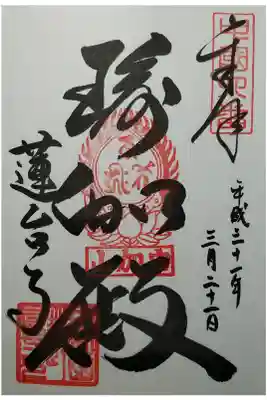 奉拝
平成二十一年
三月二十一日
瑜伽殿
蓮台寺